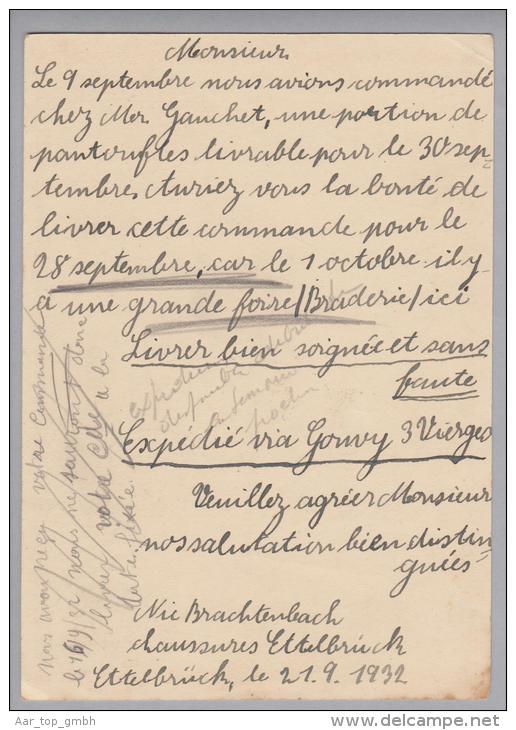 Monsieur
Le 9 septembre nous avions commandé
chez Mr. Gauchet, une portion de
pantoufles livrable pour le 30 sep=
tembre. Auriez vous la bonté de
livrer cette commande pour le
28 septembre, car le 1 octobre il y
a une grande foire/Braderie/ici
Livrer bien soignée et sans
faute
Expédié via Gouvy 3 Vierges
Veuillez agréer Monsieur
nos salutation bien distin=
guées
Nic Brachtenbach
chaussures Ettelbrück
Ettelbrück, le 21.9.1932
expédierons
disponible
semaine
nous avons reçu votre commande
le 16/9/32 nous ne saurons donc
livrer votre Cde à la
date fixée
Aar_top_gmbh
http://www.delcampe.net